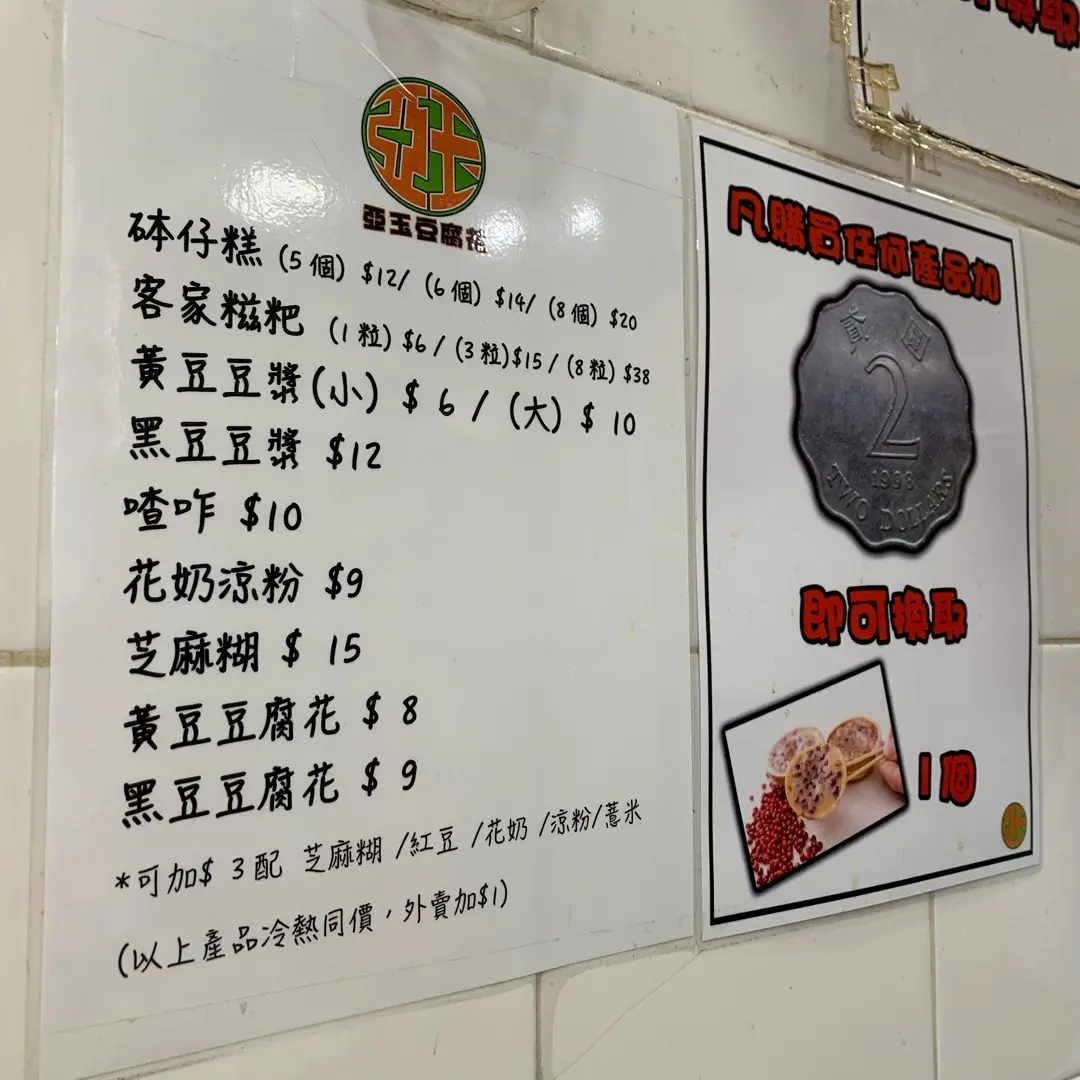 亞玉豆腐花
砵仔糕 (5個) $12/ (6個) $14/ (8個) $20
客家糍粑 (1粒) $6 / (3粒)$15 / (8粒) $38
黃豆豆漿(小) $ 6 / (大) $ 10
黑豆豆漿 $12
喳咋 $10
花奶涼粉 $9
芝麻糊 $ 15
黃豆豆腐花 $ 8
黑豆豆腐花 $ 9
*可加$ 3配 芝麻糊 /紅豆 /花奶 /涼粉/薏米
(以上產品冷熱同價，外賣加$1)
凡購買任何產品加
貳圓
2
1998
TWO DOLLARS
即可換取
1個
換取